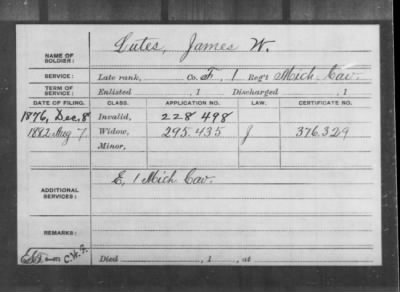 NAME OF SOLDIER: Lutes, James W.
SERVICE: Late rank, Co. F, 1 Reg't Mich. Cav.
TERM OF SERVICE: Enlisted , 1 Discharged , 1
DATE OF FILING. CLASS. APPLICATION NO. LAW. CERTIFICATE NO.
1876, Dec. 8 Invalid, 228 498
1882 Aug 7. Widow, 295.435 J 376.329
Minor,
ADDITIONAL SERVICES: E, 1 Mich Cav.
REMARKS:
C.W.F. Died , 1 , at